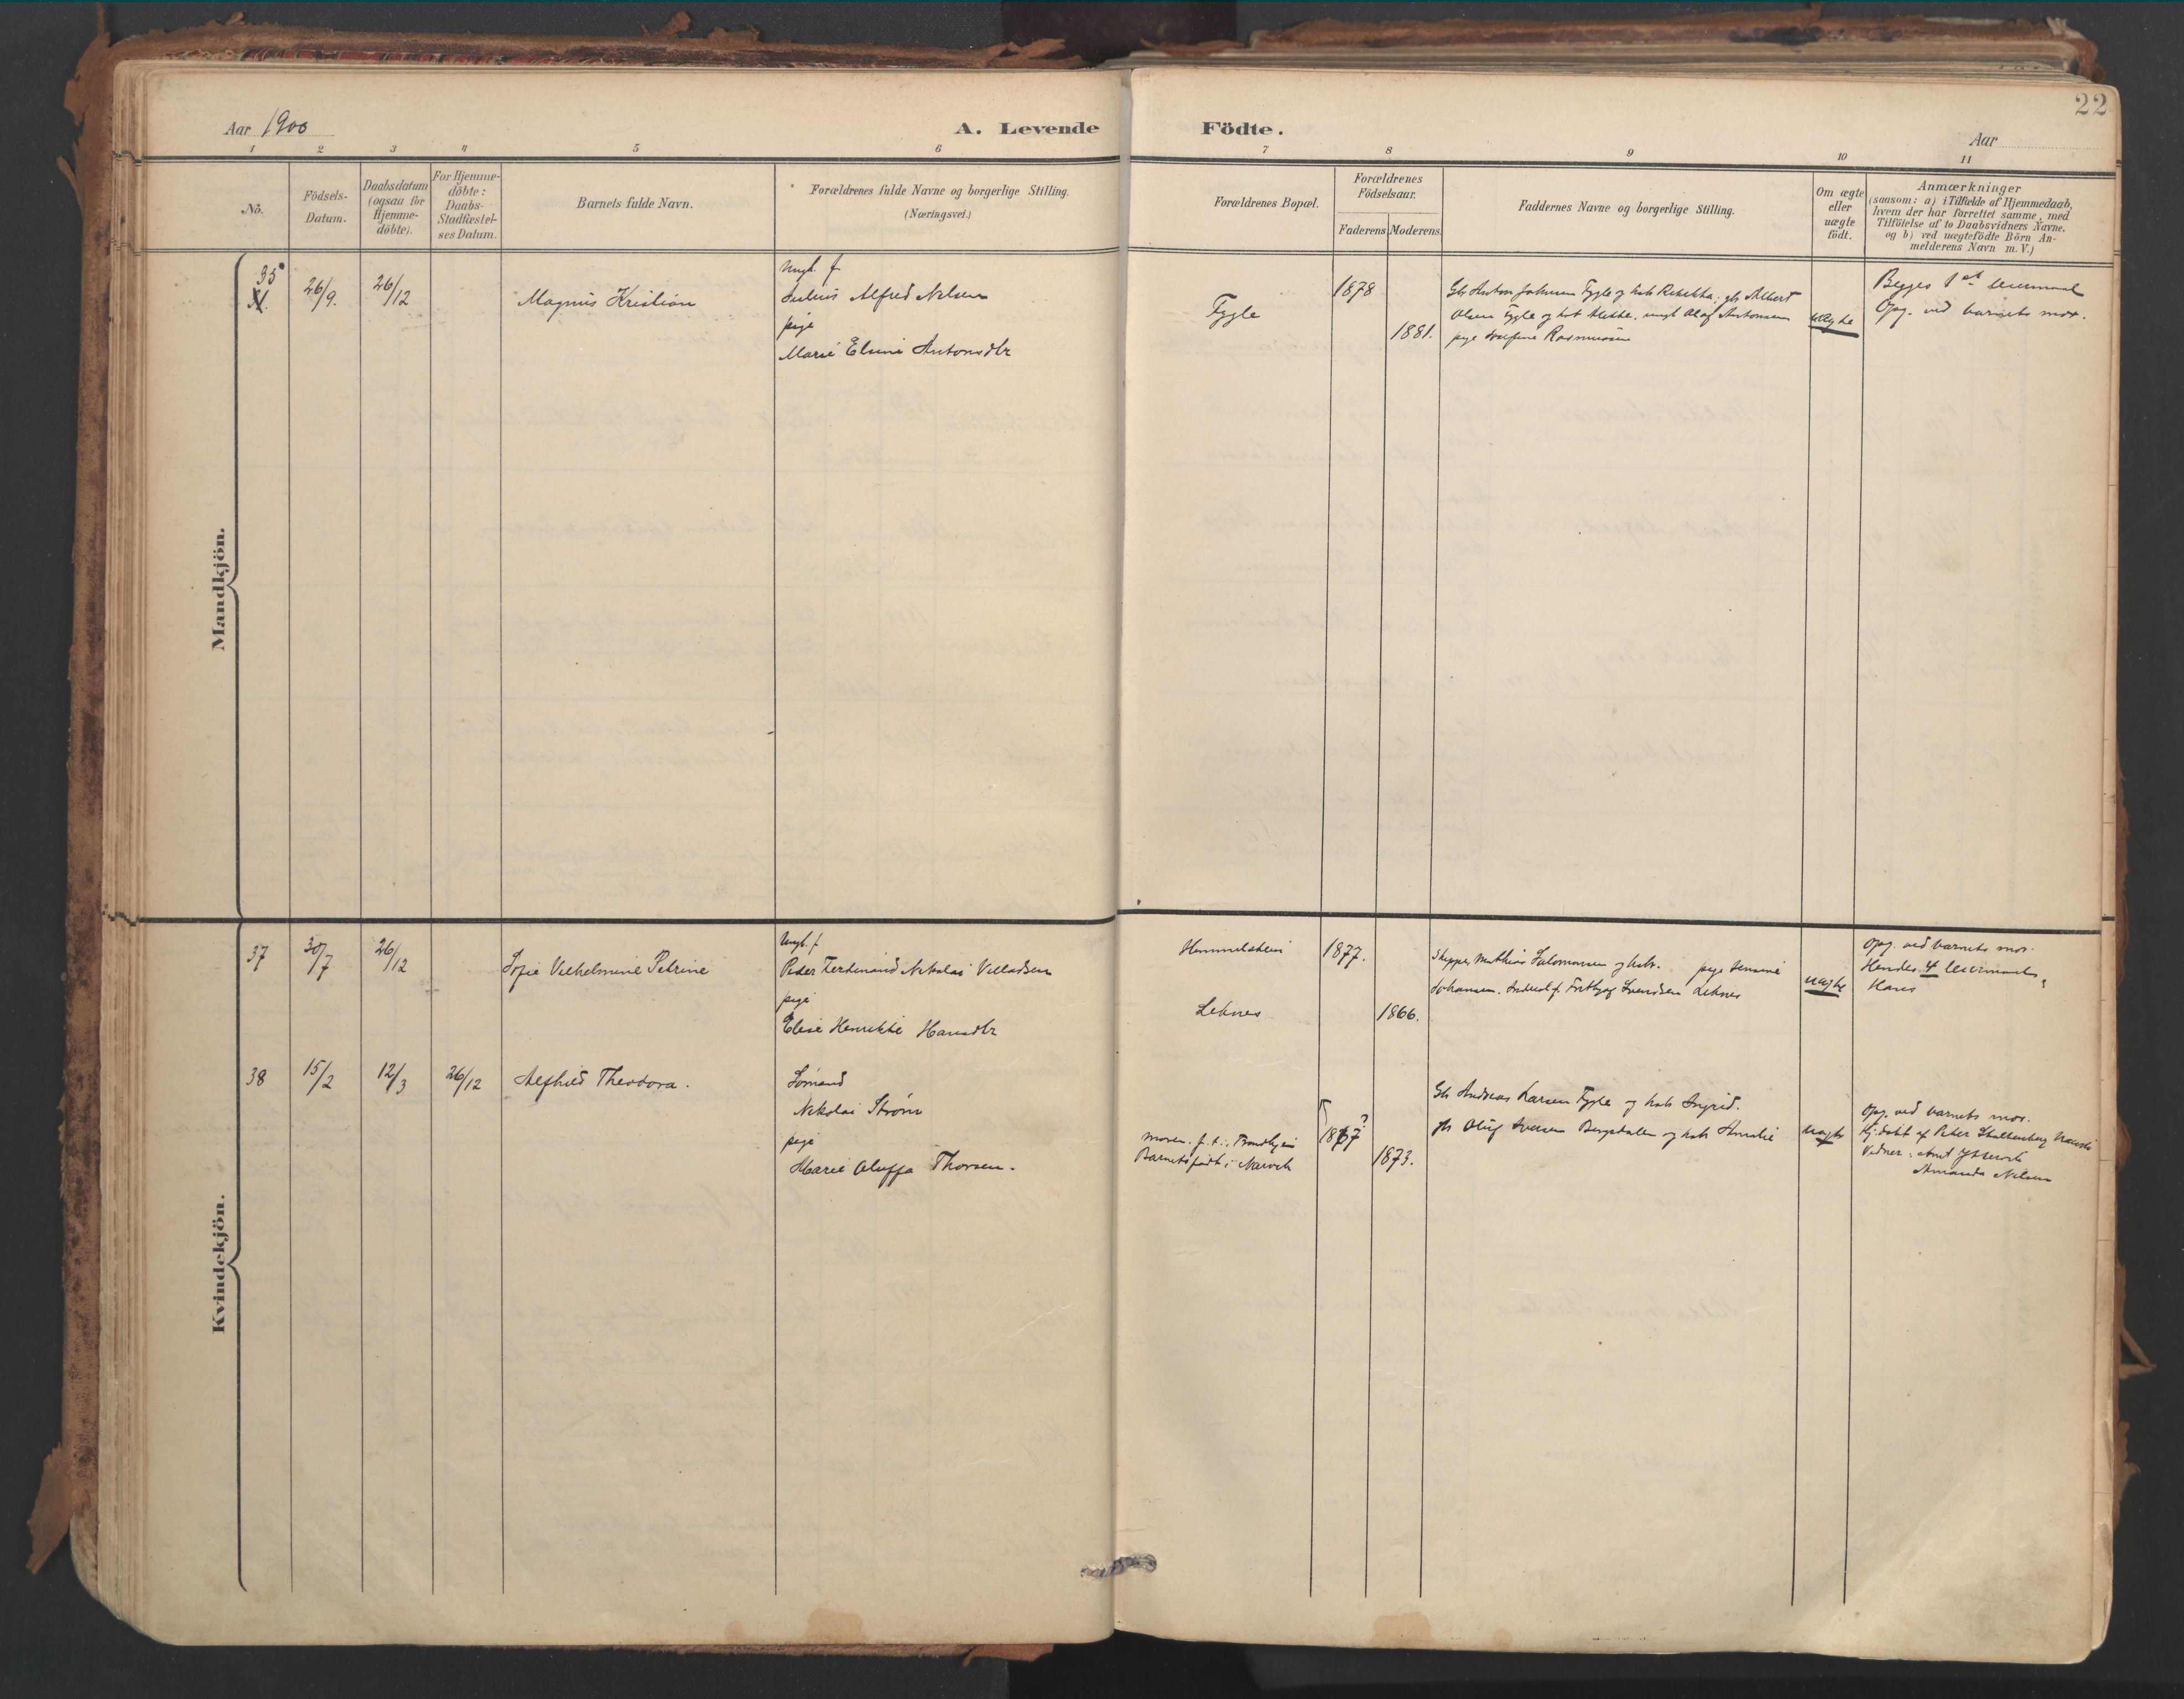 22
Aar 1900
A. Levende Födte.
Aar
1 2 3 4 5 6 7 8 9 10 11
No.
Födsels-
Datum.
Daabsdatum
(ogsaa for
Hjemme-
döbte).
For Hjemme-
döbte:
Daabs-
Stadfæstel-
ses Datum.
Barnets fulde Navn.
Forældrenes fulde Navne og borgerlige Stilling.
(Næringsvei.)
Forældrenes Bopæl.
Forældrenes
Födselsaar.
Faderens Moderens.
Faddernes Navne og borgerlige Stilling.
Om ægte
eller
uægte
födt.
Anmærkninger
(saasom: a) i Tilfælde af Hjemmedaab,
hvem der har forrettet samme, med
Tilföielse af to Daabsvidners Navne,
og b) ved uægtefödte Börn An-
melderens Navn m. V.)
Mandkjön.
35
26/9. 26/12
Magnus Kristian
Ungk. f.
Julius Alfred Nilsen
pige
Marie Elume Antonsdtr
Fygle
1878
1881.
Gb Anton Johnsen Fygle og hst Rebekka, gb Albert
Olsen Fygle og hst Mette, ungk Olaf Antonsen
pige Josefine Rasmussen
uægte
Begges 1ste leiermaal
Opg. ved barnets mor.
Kvindekjön.
37 30/7 26/12
Sofie Vilhelmine Petrine
Ungk. f.
Peder Ferdinand Nikolai Villadsen
pige
Elise Henrikke Hansdtr
Himmelstein
Leknes
1877.
1866.
Skipper Mathias Salomonsen og hstr. pige
Johansen. Inderst f. Fritjog Svendsen Leknes
uægte
Opg. ved barnets mor.
Hendes 4 leiermaal,
Hans
38 15/2 12/3 26/12
Alfhild Theodora.
Sömand
Nikolai Ström
pige
Marie Oluffa Thorsen.
Moren. f. t. i Trondhjem
Barnet födt i Narvik
1867?
1873.
Gb Andreas Larsen Fygle og hst Ingrid.
gb Oluf Iversen Bergsdalen og hst Amalie
uægte
Opg. ved barnets mor.
Hj.döbt af Peter Stoltenberg Narvik
Vidner:
Amanda Nilsen